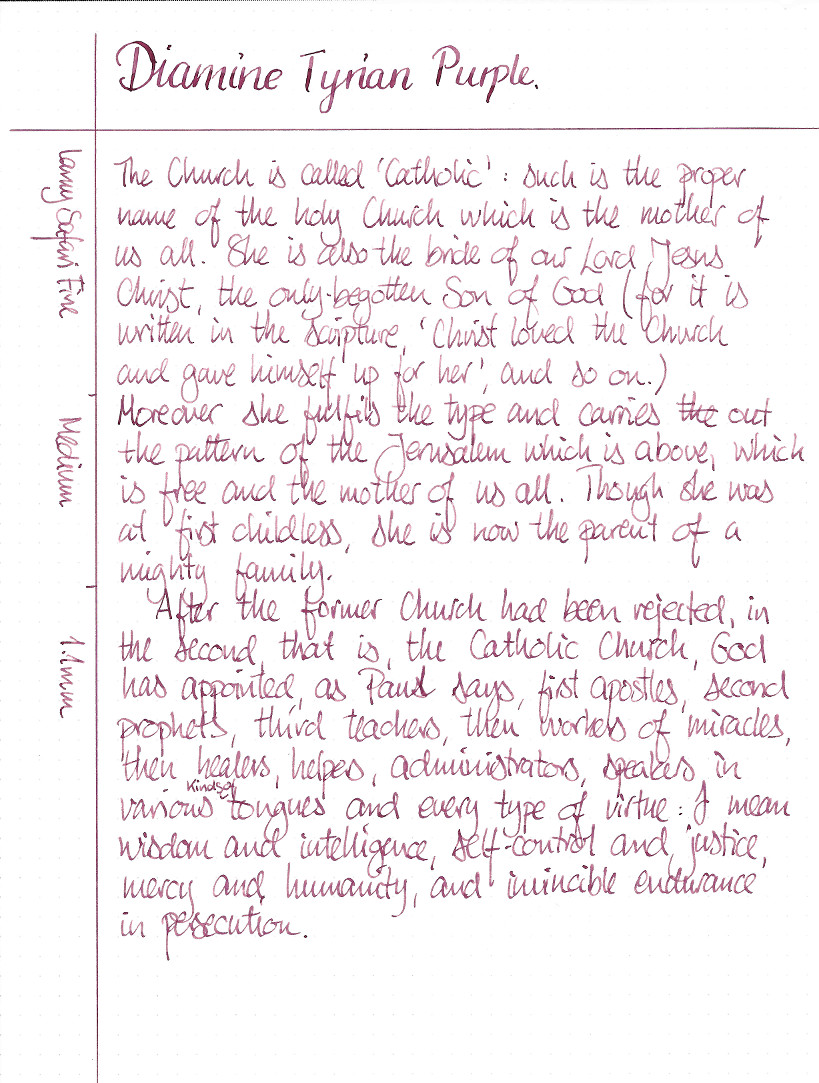 Diamine Tyrian Purple.
Lamy Safari Fine
The Church is called 'Catholic' : such is the proper
name of the holy Church which is the mother of
us all. She is also the bride of our Lord Jesus
Christ, the only-begotten Son of God (for it is
written in the scripture, 'Christ loved the Church
and gave himself up for her', and so on.)
Medium
Moreover she fulfils the type and carries the out
the pattern of the Jerusalem which is above, which
is free and the mother of us all. Though she was
at first childless, she is now the parent of a
mighty family.
1.1mm
After the former Church had been rejected, in
the second, that is, the Catholic Church, God
has appointed, as Paul says, first apostles, second
prophets, third teachers, then workers of miracles,
then healers, helpes, administrators, speakers in
various kinds of tongues and every type of virtue : I mean
wisdom and intelligence, self-control and justice,
mercy and humanity, and invincible endurance
in persecution.